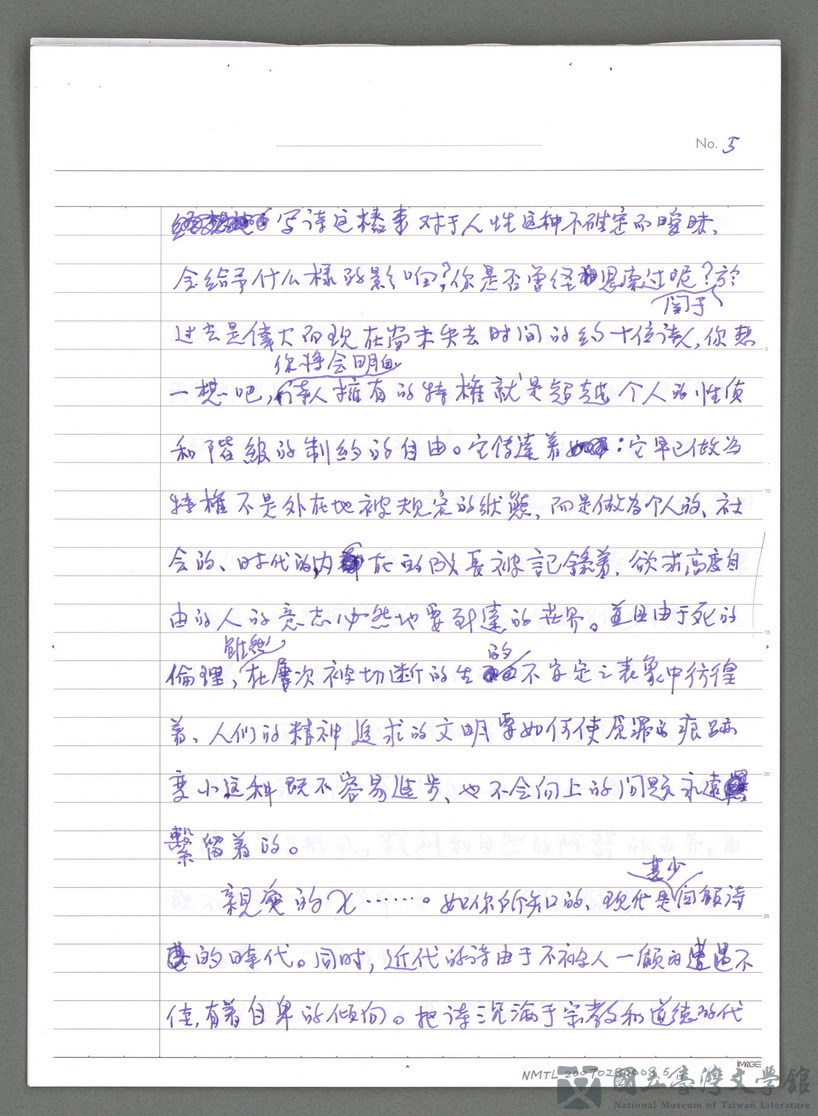 No. 5
写诗这樁事对于人性这种不確定而曖昧、
会给予什么様的影响？你是否曾经思索过呢？於
関于
过去是偉大而现在尚未失去时间的约十位诗人，你想
你将会明白
一想吧，诗人擁有的特権就是超越个人的性质
和階級的制约的自由。它传達着：它早已做为
特権不是外在地被规定的狀態，而是做为个人的、社
会的、时代的内在的成長被記錄着、欲求高度自
由的人的意志必然地要到達的世界。並且由于死的
雖然 的
倫理，在屢次被切断的生不安定之表象中彷徨
着、人们的精神追求的文明要如何使原罪的痕跡
变小这种既不容易進步、也不会向上的问题永遠
繫留着的。
甚少
親愛的X……。如你所知的、现代是回顧诗
的時代。同时，近代的诗由于不被人一顧的遭遇不
佳，有着自卑的傾向。把诗沉淪于宗教和道德的代
IMAGE
NMTL
國立臺灣文学館
National Museum of Taiwan Literature